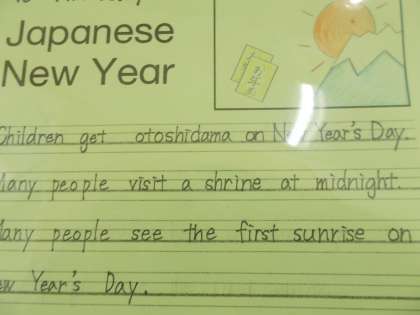 Japanese
New Year
お年玉
Children get otoshidama on New Year's Day.
Many people visit a shrine at midnight.
Many people see the first sunrise on
New Year's Day.